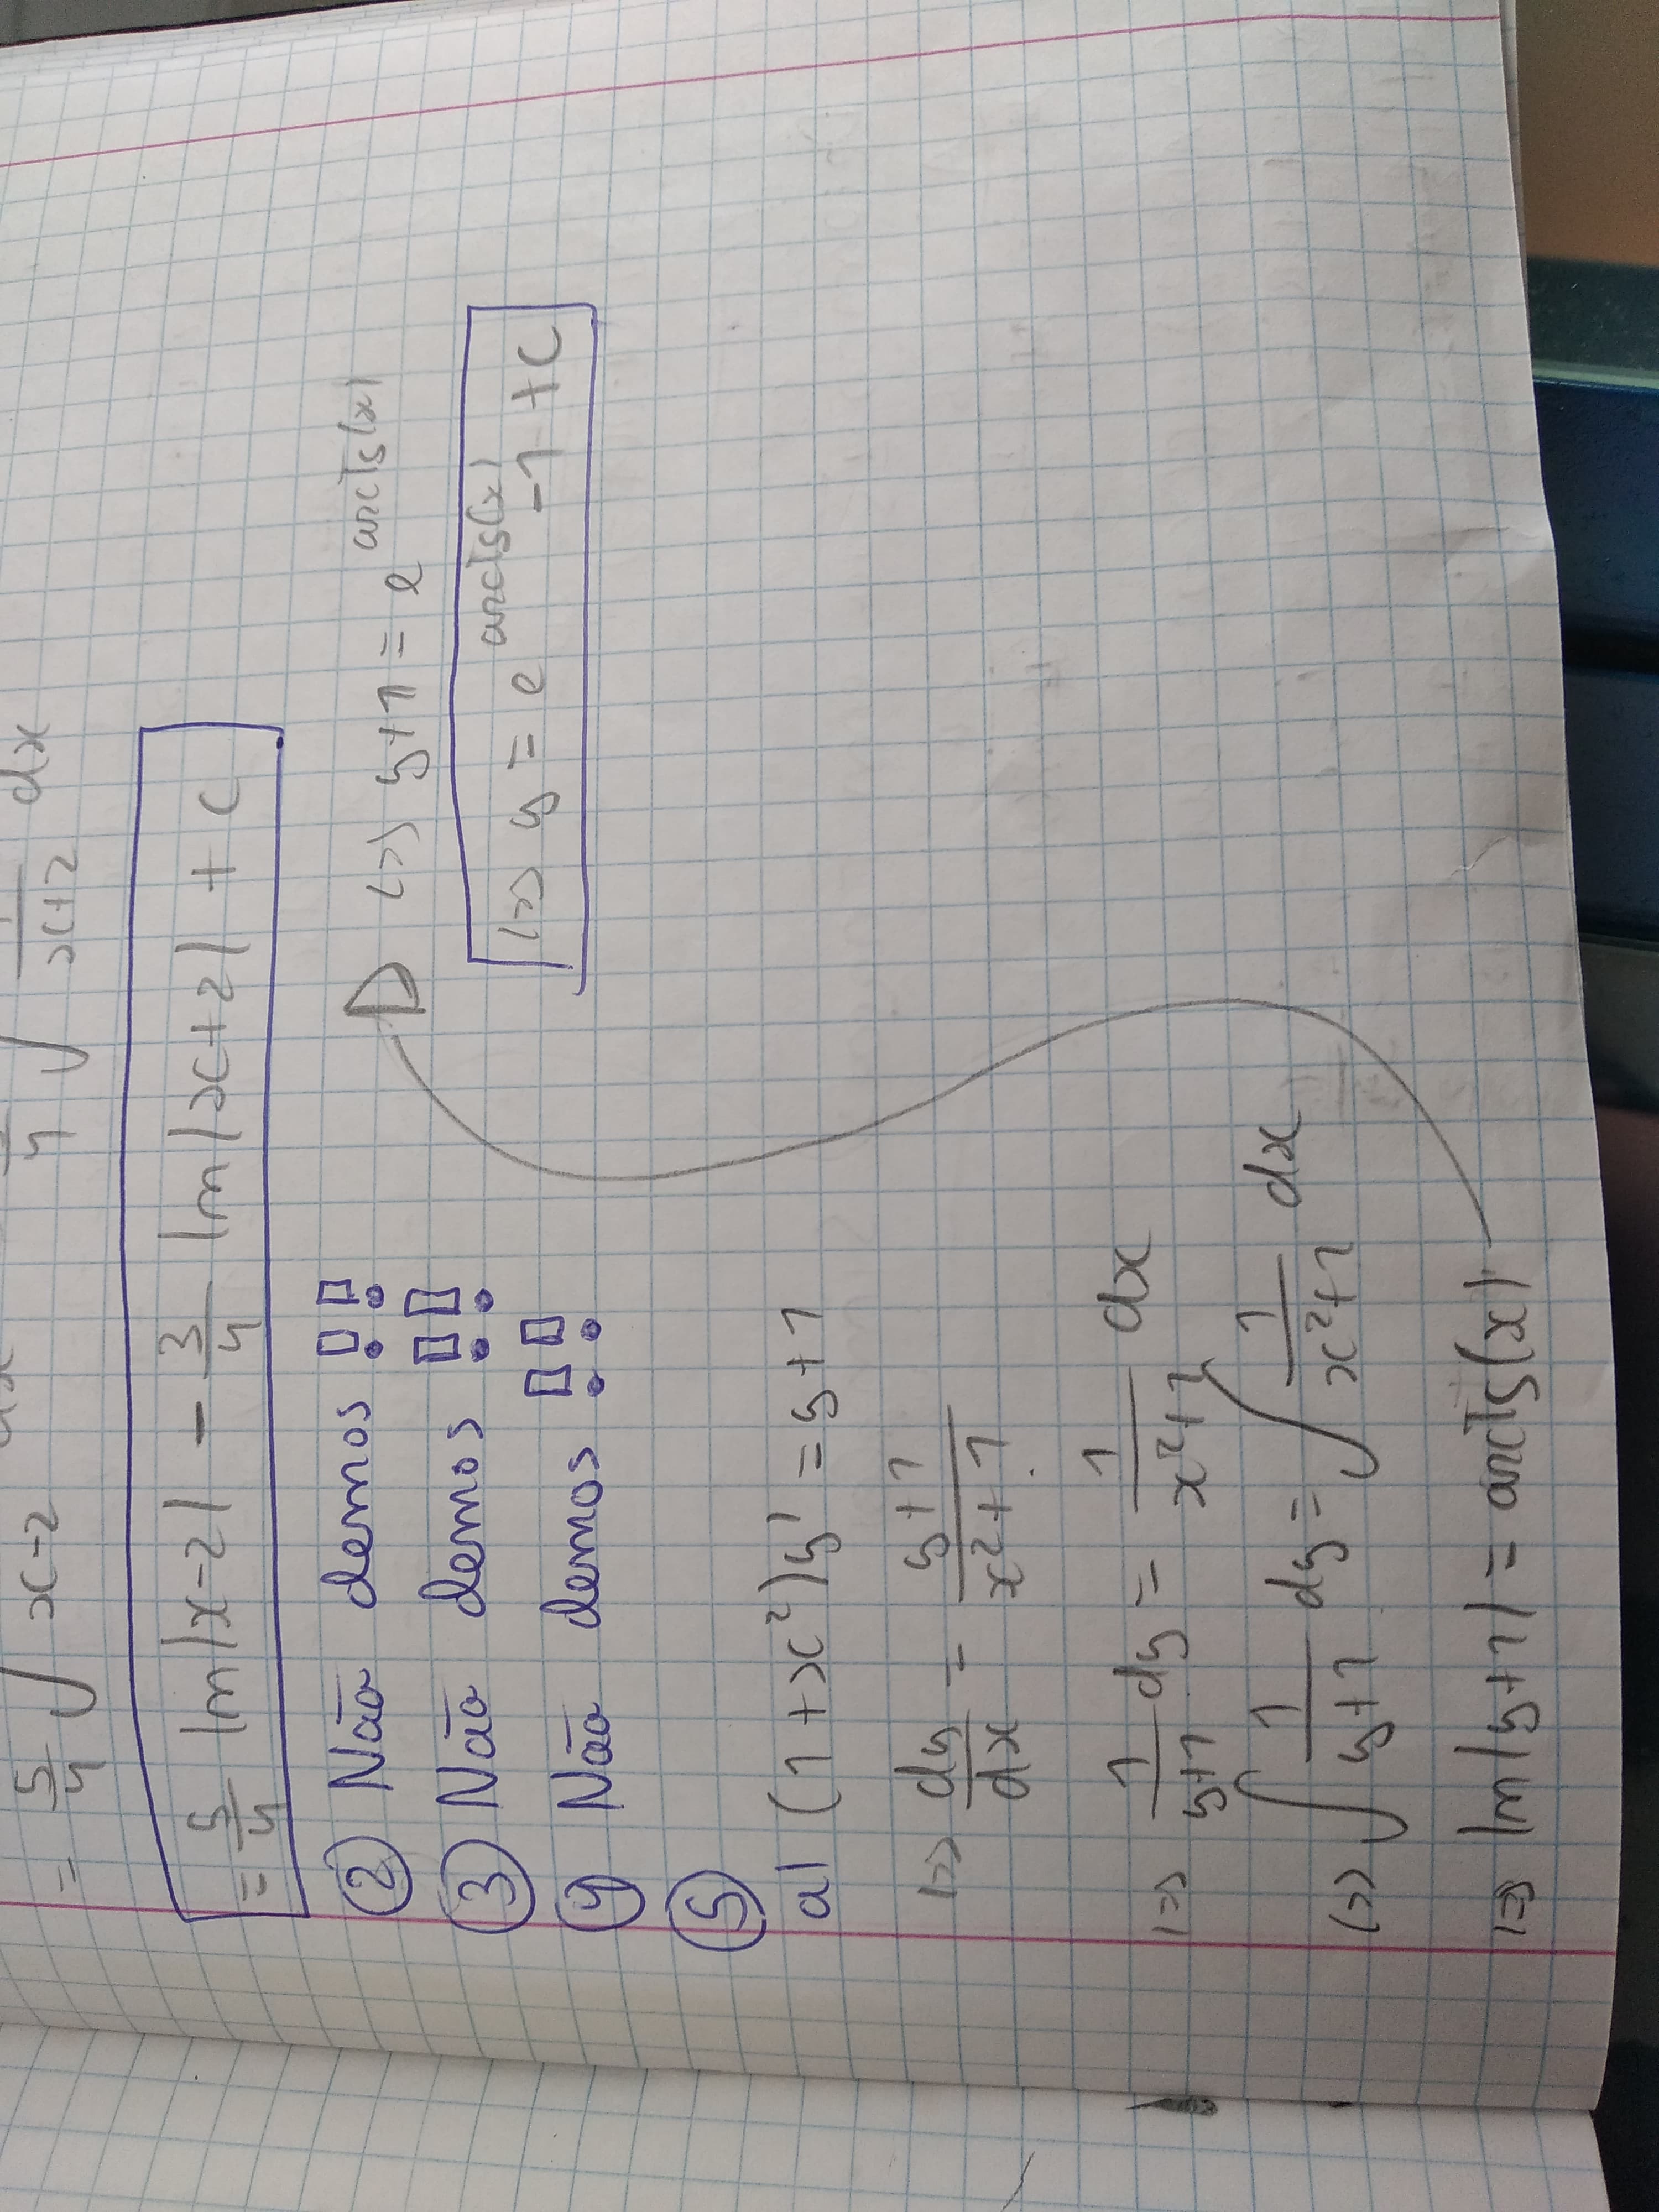 = 5/4 ∫ x-2 dx 4 ∫ 1/(x+2) dx
= 5/4 ln|x-2| - 3/4 ln|x+2| + C
② Não demos !!
③ Não demos !!
④ Não demos !!
⑤
a) (1+x²)y' = y+1
(=) dy/dx = (y+1)/(x²+1)
(=) 1/(y+1) dy = 1/(x²+1) dx
(=) ∫ 1/(y+1) dy = ∫ 1/(x²+1) dx
(=) ln|y+1| = arctg(x)
(=) y+1 = e^arctg(x)
(=) y = e^arctg(x) -1 +C